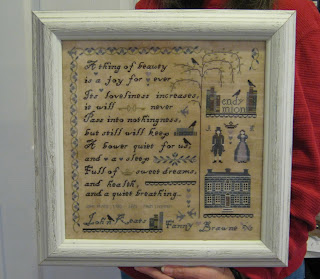 A thing of beauty
is a joy for ever
Its loveliness increases,
it will never
Pass into nothingness,
but still will keep
A bower quiet for us,
and a sleep
Full of sweet dreams,
and health,
and a quiet breathing..
John Keats
endy
mion
Fanny Brawne